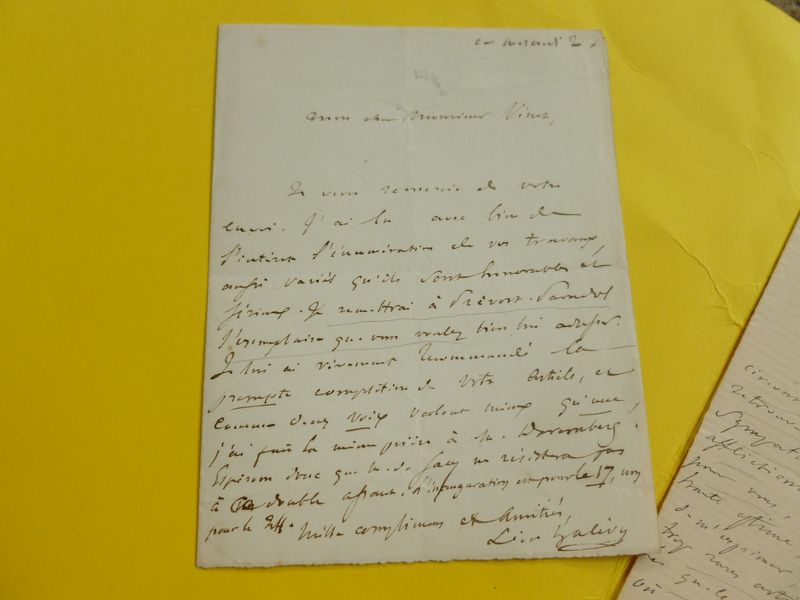 ce mercredi 2.
Mon cher Monsieur Vinet,
Je vous remercie de votre
envoi. J'ai lu avec bien de
l'intérêt l'énumération de vos travaux,
aussi variés qu'ils sont honorables et
sérieux. Je remettrai à Prévost-Paradol
l'exemplaire que vous voulez bien lui adresser.
Je lui ai vivement recommandé la
prompte composition de votre article, et
comme deux voix valent mieux qu'une,
j'ai fait la même prière à M. Daremberg.
Espérons donc que M. de Sacy ne résistera pas
à ce double assaut. L'inauguration est pour le 17, non
pour le 24. Mille complimens et amitiés,
Léon Halévy
circons
retrouv
sympat
affliction
pour vous,
haute estime,
d'm'exprimer,
trop rares
que le
où